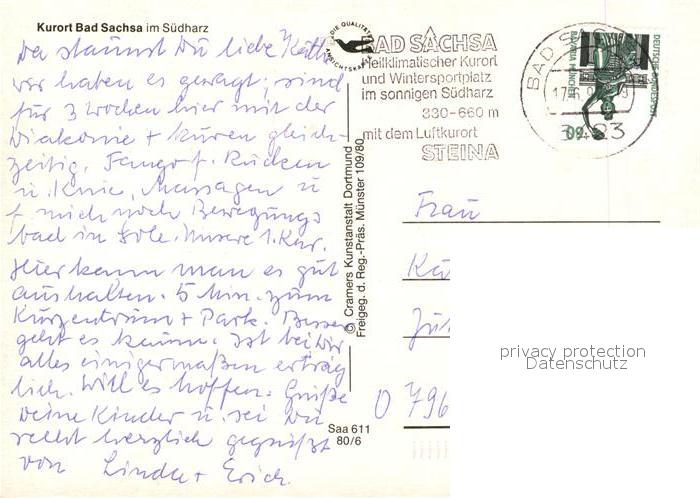 Kurort Bad Sachsa im Südharz
Da staunst Du liebe Käthe
wir haben es gewagt, sind
für 3 Wochen hier mit der
Diakonie + kuren gleich-
zeitig. Fango f. Rücken
u. Knie, Massagen u
f. mich noch Bewegungs
bad in Sole. Unsere 1. Kur.
Hier kann man es gut
aushalten. 5 Min. zum
Kurzentrum + Park. Besser
geht es kaum. Ist bei Dir
alles einigermaßen erträg
lich. Will es hoffen. Grüße
Deine Kinder u. sei Du
selbst herzlich gegrüßt
von Linda + Erich.
DIE QUALITÄTS
ANSICHTSKARTE
© Cramers Kunstanstalt Dortmund
Freigeg. d. Reg.-Präs. Münster 109/80
Saa 611
80/6
BAD SACHSA
Heilklimatischer Kurort
und Wintersportplatz
im sonnigen Südharz
330-660 m
mit dem Luftkurort
STEINA
BAD
17.6
3423
60
DEUTSCHE BUNDESPOST
Frau
Kä
O 796
privacy protection
Datenschutz